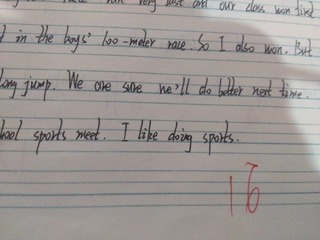 run very fast and our class won first
in the boys' 100-meter race. So I also won. But
long jump. We are sure we'll do better next time.
sports meet. I like doing sports.
16